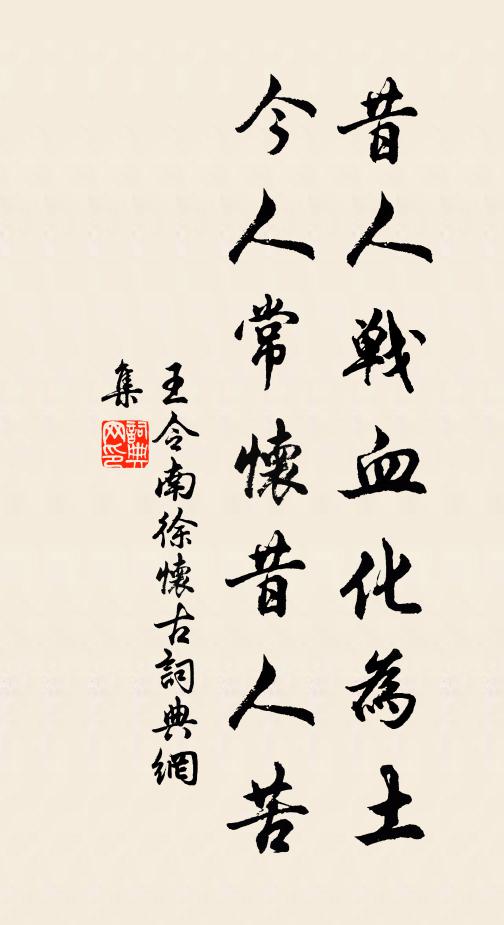 昔人戰血化為土
今人常懷昔人苦
王令南徐懷古詞典網
集
詞典
网印